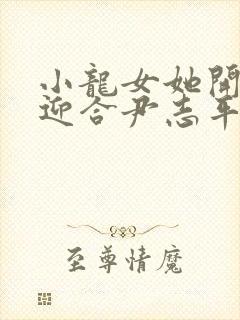 小龍女她開
迎合尹志平
至尊情魔